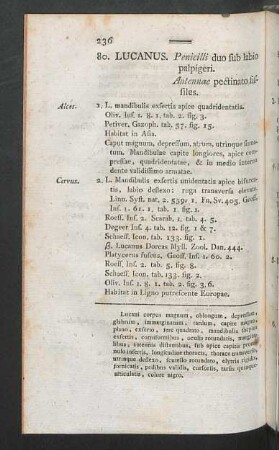 236
80. LUCANUS. Penicilli duo sub labio
palpigeri.
Antennae pectinato fis-
siles.
Alces. 1. L. mandibulis exsertis apice quadridentatis.
Oliv. Inf. 1. 8. 1. tab. 2. fig. 3.
Petiver. Gazoph. tab. 57. fig. 15.
Habitat in Asia.
Caput magnum, depressum, atrum, utrinque
tum. Mandibulae capite longiores, apice com-
pressae, quadridentatae, & in medio
dente validissimo armatae.
Cervus. 2. L. Mandibulis exsertis unidentatis apice bifurca-
tis, labio deflexo: ruga transversa elevata.
Linn. Syst. nat. 2. 559. 1. Fn. Sv. 405. Geoff.
Inf. 1. 61. 1. tab. 1. fig. 1.
Roes. Inf. 2. Scarab. 1. tab. 4. 5.
Degeer Inf. 4. tab. 12. fig. 1 & 7.
Schaeff. Icon. tab. 133. fig. 1.
β. Lucanus Dorcas Myll. Zool. Dan. 444.
Platycerus fuscus, Geoff. Inf. 1. 60. 2.
Roes. Inf. 2. tab. 5. fig. 8.
Schaeff. Icon. tab. 133. fig. 2.
Oliv. Inf. 1. 8. 1. tab. 2. fig. 3. 6.
Habitat in Ligno putrescente Europae.
Lucani corpus magnum, oblongum, depressum,
glabrum, immarginatum, tardum, capite magno,
plano, exserto,
exsertis, corniformibus, oculis rotundatis,
libus, antennis distantibus, sub apice capitis
oculis insertis, longitudine thoracis, thorace transverso,
utrinque deflexo, scutello rotundato, elytris rigidis,
fornicatis, pedibus validis, cursoriis, tarsis quinque-
articulatis, colore nigro.